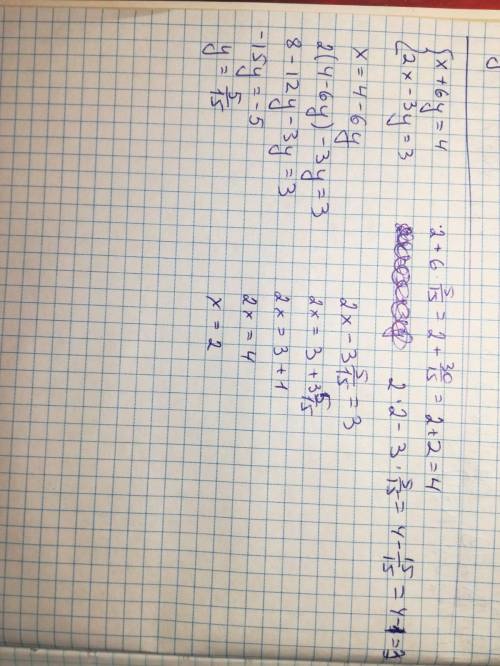 {x + 6y = 4
{2x - 3y = 3
x = 4 - 6y
2(4 - 6y) - 3y = 3
8 - 12y - 3y = 3
-15y = -5
y = 5/15
2 + 6 · 5/15 = 2 + 30/15 = 2 + 2 = 4
2 · 2 - 3 · 5/15 = 4 - 15/15 = 4 - 1 = 3
2x - 3 5/15 = 3
2x = 3 + 3 5/15
2x = 3 + 1
2x = 4
x = 2